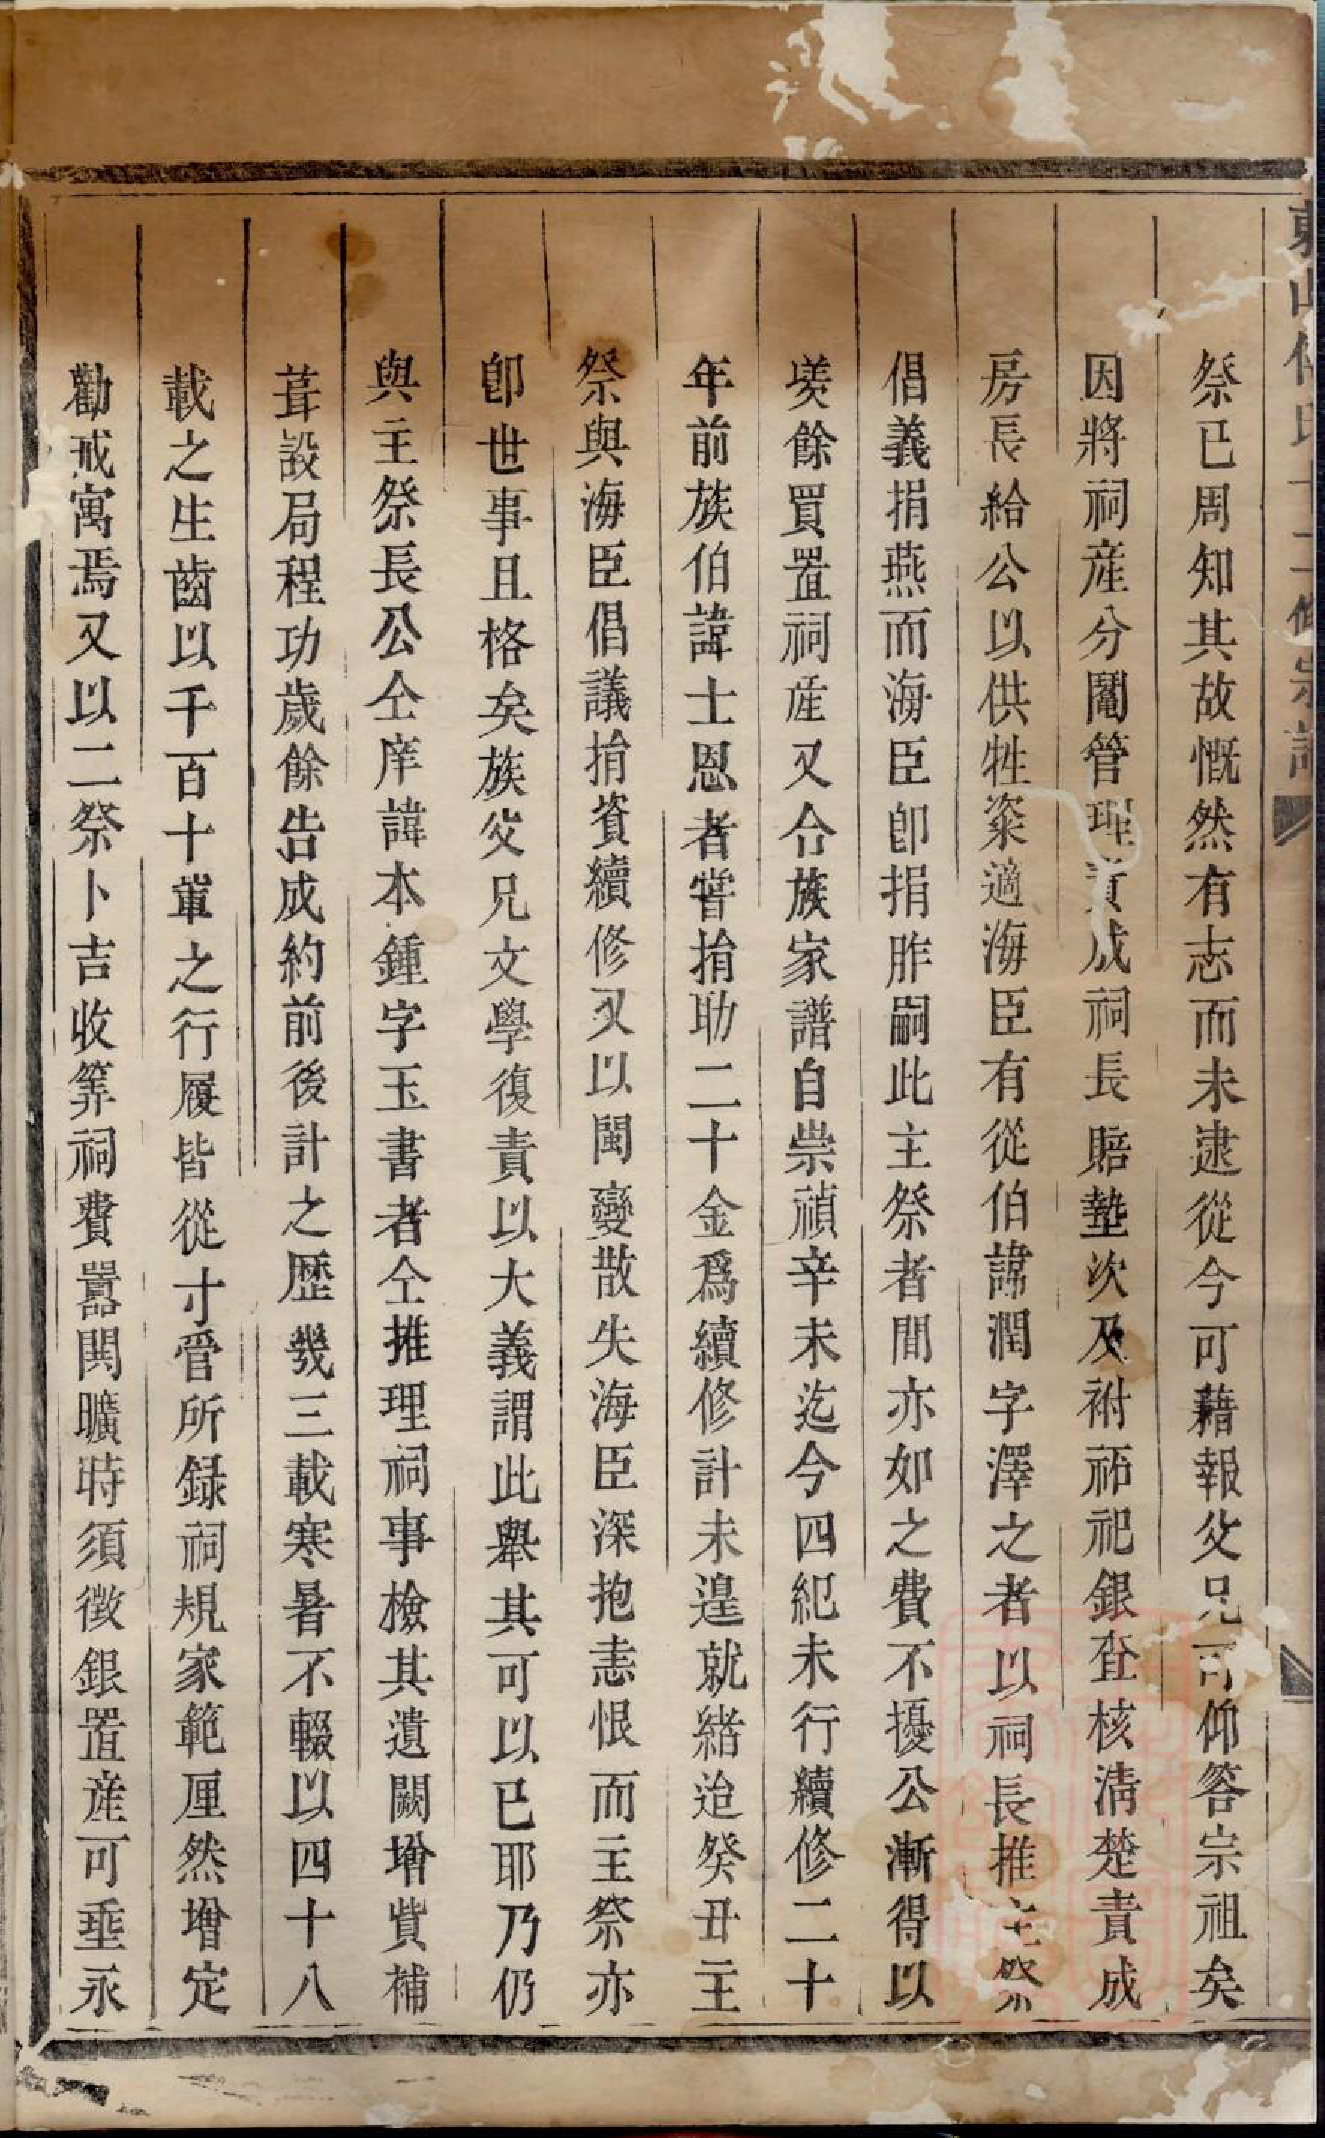 祭已周知其故慨然有志而未逮從今可藉報父兄可仰答宗祖矣
因將祠産分鬮管理責成祠長賠墊次及祔祏祀銀查核淸楚責成
房長給公以供牲粢適海臣有從伯諱潤字澤之者以祠長推主祭
倡義捐燕而海臣卽捐胙嗣此主祭者間亦如之費不擾公漸得以
羨餘買置祠産又合族家譜自崇禎辛未迄今四紀未行續修二十
年前族伯諱士恩者嘗捐助二十金爲續修計未遑就緒迨癸丑主
祭與海臣倡議捐資續修又以閩變散失海臣深抱恚恨而主祭亦
卽世事且格矣族父兄文學復責以大義謂此舉其可以已耶乃仍
與主祭長公仝庠諱本鍾字玉書者仝推理祠事檢其遺闕增貲補
葺設局程功歲餘告成約前後計之歷幾三載寒暑不輟以四十八
載之生齒以千百十輩之行履皆從寸管所録祠規家範厘然增定
勸戒寓焉又以二祭卜吉收筭祠費囂鬨曠時須徵銀置産可垂永
東山傅氏十二修宗譜